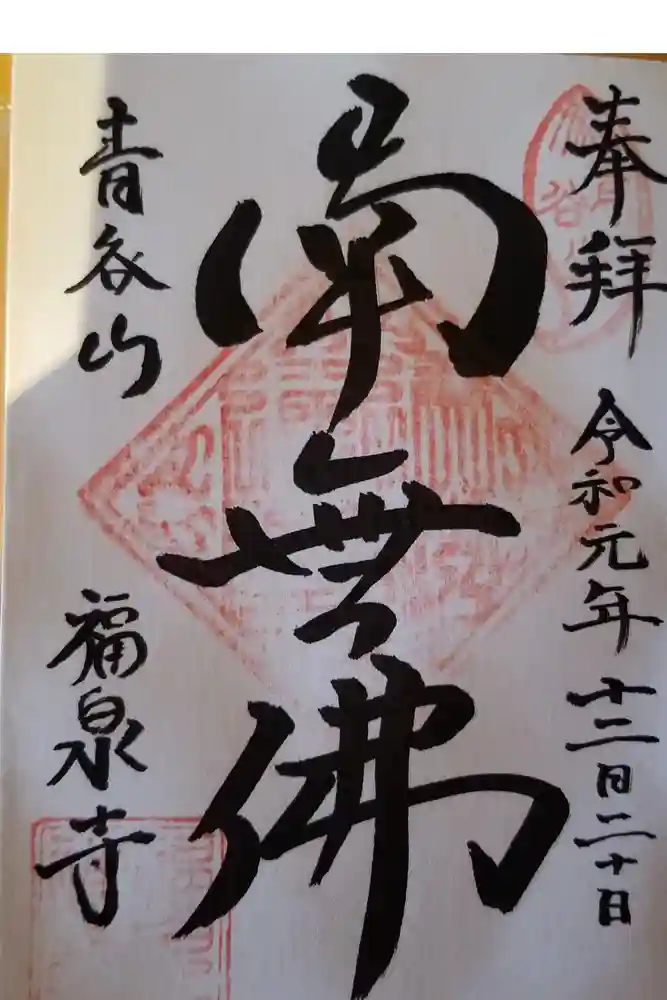 奉拝
令和元年十二月二十日
南無佛
青谷山
福泉寺